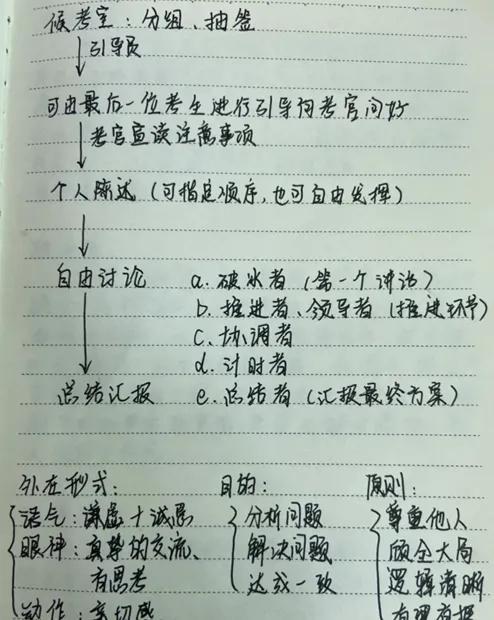 候考室：分组、抽签
引导员
可由最后一位考生进行引导向考官问好
考官宣读注意事项
个人陈述（可指定顺序，也可自由发挥）
自由讨论 a. 破冰者（第一个讲话）
b. 推进者、领导者（推进环节）
c. 协调者
d. 计时者
总结汇报 e. 总结者（汇报最终方案）
外在形式： 目的： 原则：
语气：谦虚+诚恳 分析问题 尊重他人
眼神：真挚的交流、 解决问题 顾全大局
有思考 达成一致 逻辑清晰
动作：亲切感 有理有据